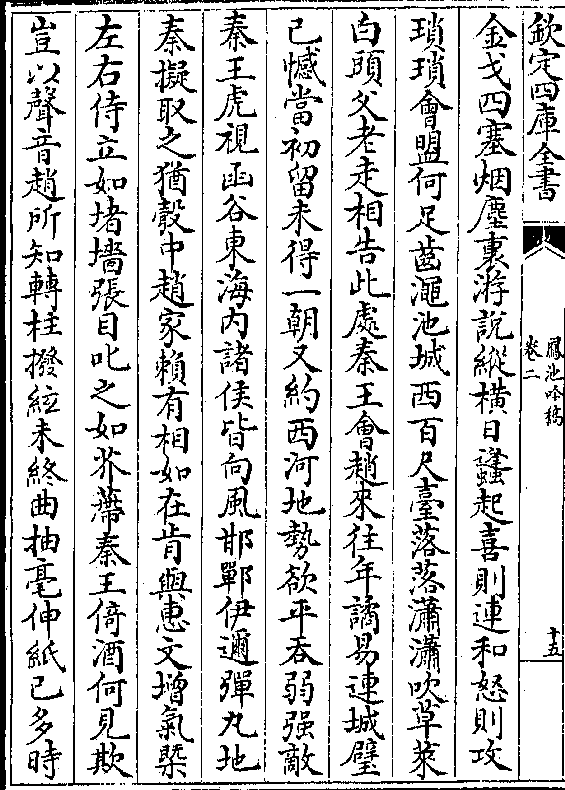 欽定四庫全書
鳳池吟稿
卷二
十五
金戈四塞烟塵裏游說縱橫日蠭起喜則連和怒則攻
瑣瑣會盟何足齒澠池城西百尺臺落落瀟瀟吹草萊
白頭父老走相告此處秦王會趙來往年譎易連城璧
已憾當初留未得一朝又約西河地勢欲平吞弱强敵
秦王虎視函谷東海内諸侯皆向風邯鄲伊邇彈丸地
秦擬取之猶彀中趙家賴有相如在肯與惠文增氣槩
左右侍立如堵墻張目叱之如芥蔕秦王倚酒何見欺
豈以聲音趙所知轉柱撥絃未終曲抽毫伸紙已多時